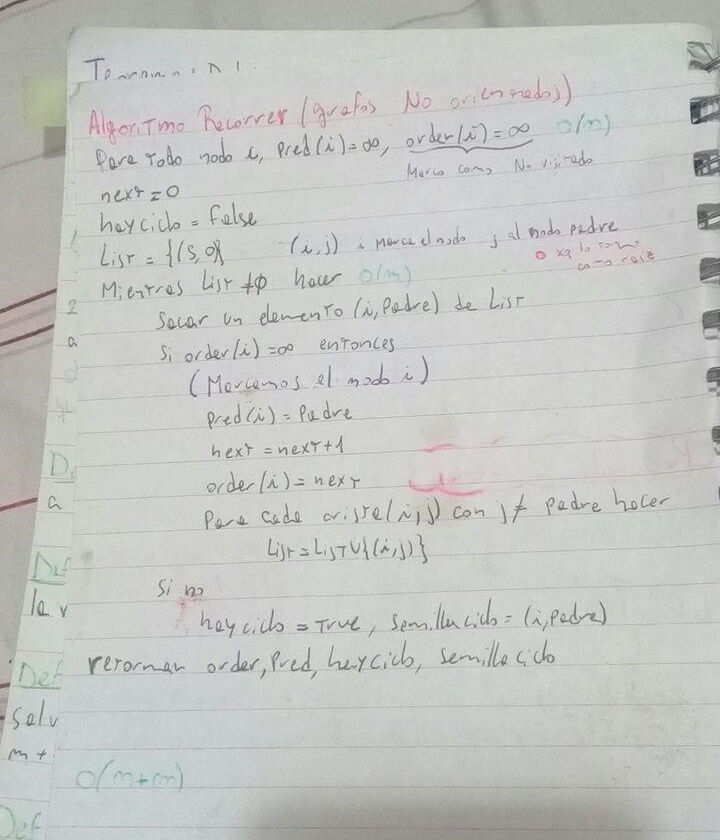 Algoritmo Recorrer (grafos No orientados)
Para todo nodo i, pred(i)=∞, order(i)=∞ O(n)
Marco como No visitado
next=0
hayciclo = False
List = {(s,0)} (i,j) i marca el nodo j al nodo padre
0 xq lo tomo como raiz
Mientras List ≠ϕ hacer O(m)
Sacar un elemento (i,Padre) de List
Si order(i)=∞ entonces
(Marcamos el nodo i)
pred(i)=Padre
next=next+1
order(i)=next
Para cada arista(i,j) con j≠ padre hacer
List=List∪{(i,j)}
Si no
hayciclo=True, semillaciclo=(i,padre)
retornan order, Pred, hayciclo, semillaciclo
O(n+m)
D
a
Def
la v
Def
solv
m+
Def